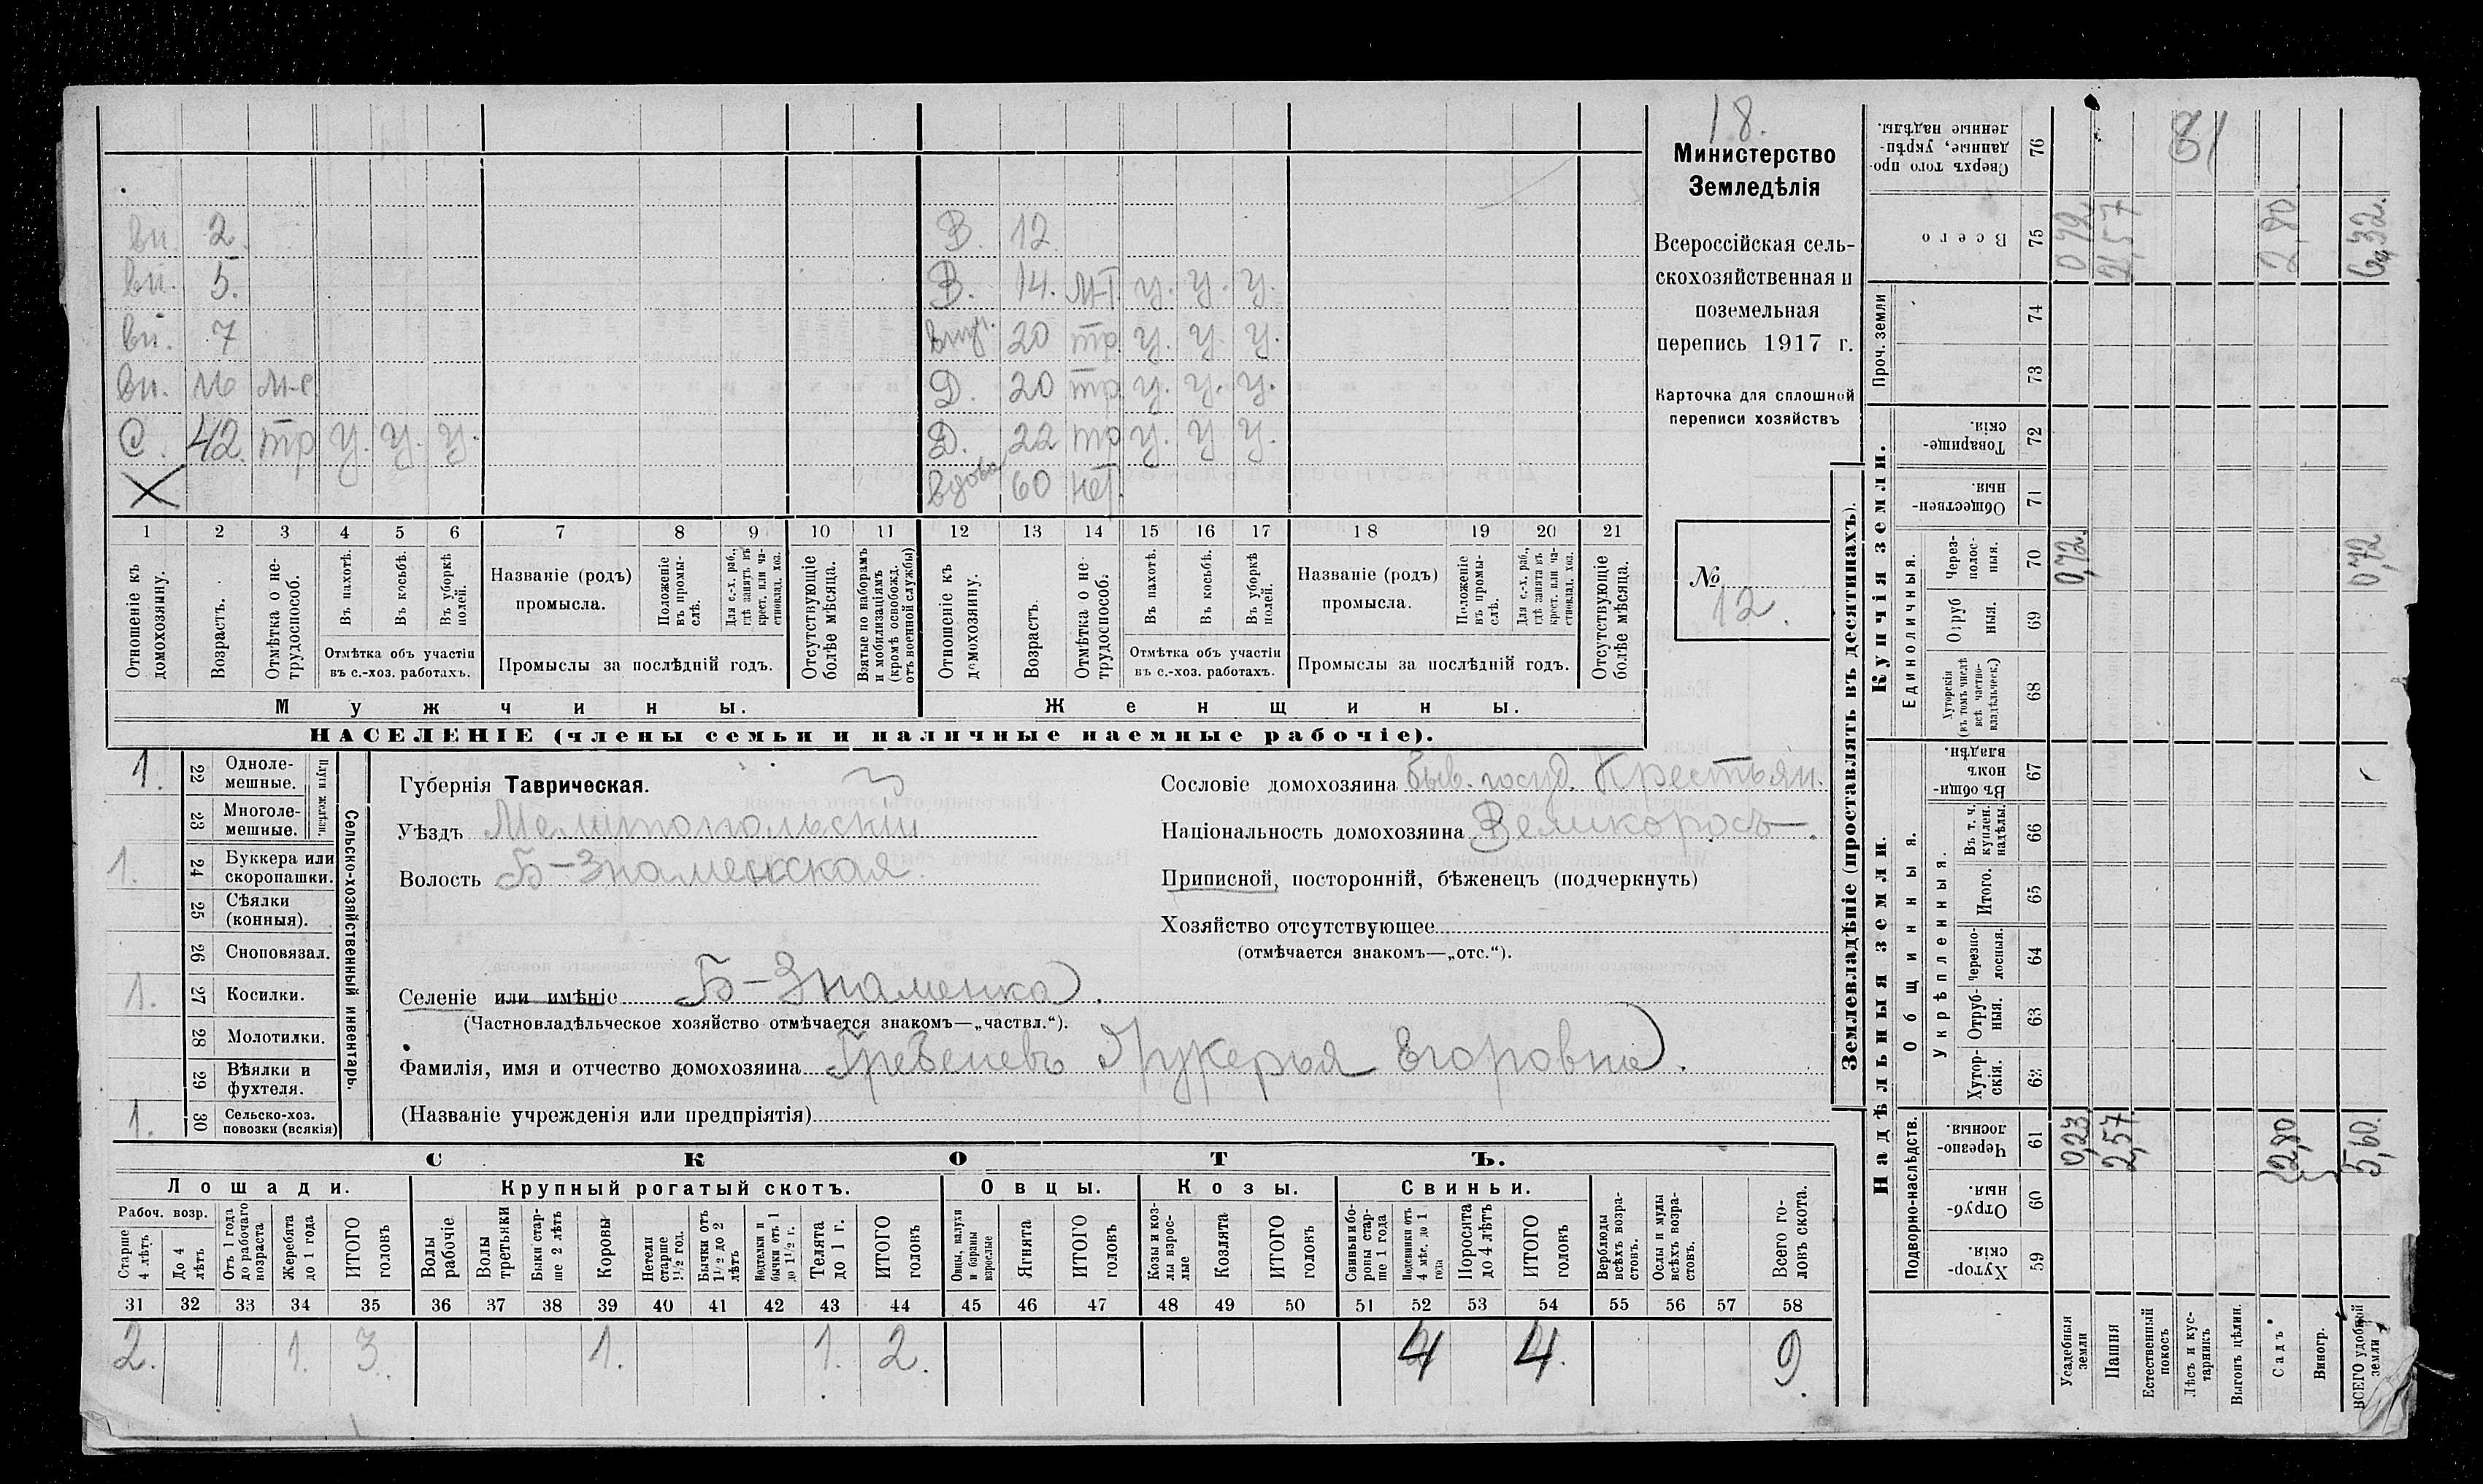 18.
Министерство
Земледѣлія
Всероссійская сель-
скохозяйственная и
поземельная
перепись 1917 г.
Карточка для сплошной
переписи хозяйствъ
№
12.
вн. 2. В. 12.
вн. 5. В. 14. М-Т. у. у. у.
вн. 7 внуч. 20 тр. у. у. у.
вн. 16 М-С Д. 20 тр. у. у. у.
С. 42. тр у. у. у. Д. 22 тр у. у у.
X вдова 60 нѣт.
1 2 3 4 5 6 7 8 9 10 11 12 13 14 15 16 17 18 19 20 21
Отношеніе къ домохозяину.
Возрастъ.
Отмѣтка о нетрудоспособ.
Въ пахотѣ.
Въ косьбѣ.
Въ уборкѣ полей.
Отмѣтка объ участіи
въ с.-хоз. работахъ.
Названіе (родъ)
промысла.
Положеніе въ промыслѣ.
Для с.-х. раб., гдѣ занятъ въ крест. или частновлад. хоз.
Промыслы за послѣдній годъ.
Отсутствующіе болѣе мѣсяца.
Взятые по наборамъ и мобилизаціямъ (кромѣ освобожд. отъ военной службы)
Отношеніе къ домохозяину.
Возрастъ.
Отмѣтка о нетрудоспособ.
Въ пахотѣ.
Въ косьбѣ.
Въ уборкѣ полей.
Отмѣтка объ участіи
въ с.-хоз. работахъ.
Названіе (родъ)
промысла.
Положеніе въ промыслѣ.
Для с.-х. раб., гдѣ занята въ крест. или частновлад. хоз.
Промыслы за послѣдній годъ.
Отсутствующіе болѣе мѣсяца.
Мужчины. Женщины.
НАСЕЛЕНІЕ (члены семьи и наличные наемные рабочіе).
Сельско-хозяйственный инвентарь.
Плуги желѣзн.
1. 22 Однолемешные.
23 Многолемешные.
1. 24 Буккера или скоропашки.
25 Сѣялки (конныя).
26 Сноповязал.
1. 27 Косилки.
28 Молотилки.
29 Вѣялки и фухтеля.
1. 30 Сельско-хоз. повозки (всякія)
Губернія Таврическая.
Уѣздъ Мелитопольскій
Волость Б-Знаменская.
Сословіе домохозяина быв. госуд. Крестьян.
Національность домохозяина Великоросъ.
Приписной, посторонній, бѣженецъ (подчеркнуть)
Хозяйство отсутствующее
(отмѣчается знакомъ—„отс.“).
Селеніе или имѣніе Б-Знаменка.
(Частновладѣльческое хозяйство отмѣчается знакомъ—„частвл.“).
Фамилія, имя и отчество домохозяина Гребеневъ Лукерья Егоровна.
(Названіе учрежденія или предпріятія)
СКОТЪ.
Лошади. Крупный рогатый скотъ. Овцы. Козы. Свиньи.
Рабоч. возр.
Старше 4 лѣтъ
До 4 лѣтъ
Отъ 1 года до рабочаго возраста
Жеребята до 1 года
ИТОГО головъ
Волы рабочіе
Волы третьяки
Быки старше 2 лѣтъ
Коровы
Нетели старше 1½ год.
Бычки отъ 1½ до 2 лѣтъ
Подтелки и бычки отъ 1 до 1½ г.
Телята до 1 г.
ИТОГО головъ
Овцы, валухи и бараны взрослые
Ягнята
ИТОГО головъ
Козы и козлы взрослые
Козлята
ИТОГО головъ
Свиньи и боровы старше 1 года
Подсвинки отъ 4 мѣс. до 1 года
Поросята до 4 лѣтъ
ИТОГО головъ
Верблюды всѣхъ возрастовъ.
Ослы и мулы всѣхъ возрастовъ.
Всего головъ скота.
31 32 33 34 35 36 37 38 39 40 41 42 43 44 45 46 47 48 49 50 51 52 53 54 55 56 57 58
2. 1. 3. 1. 1. 2. 4 4. 9.
Землевладѣніе (проставлять въ десятинахъ).
Надѣльныя земли. Купчія земли. Проч. земли
Подворно-наслѣдств. Общинныя. Укрѣпленныя. Единоличныя.
59 Хуторскія.
60 Отрубныя.
61 Черезполосныя. 0,23 2,57 2,80 5,60.
62 Хуторскія.
63 Отрубныя.
64 Черезполосныя.
65 Итого.
66 Въ т. ч. куплен. надѣлы.
67 Въ общинномъ владѣн.
68 Хуторскія (въ томъ числѣ всѣ частновладѣльческ.)
69 Отрубныя.
70 Черезполосныя. 0,72. 0,72
71 Общественныя.
72 Товарищескія.
73
74
75 Всего 2,80 6,32.
76 Сверхъ того проданные, укрѣпленные надѣлы.
31
Усадебныя земли
Пашня
Естественный покосъ
Лѣсъ и кустарникъ
Выгонъ цѣлин.
Садъ
Виногр.
ВСЕГО удобной земли